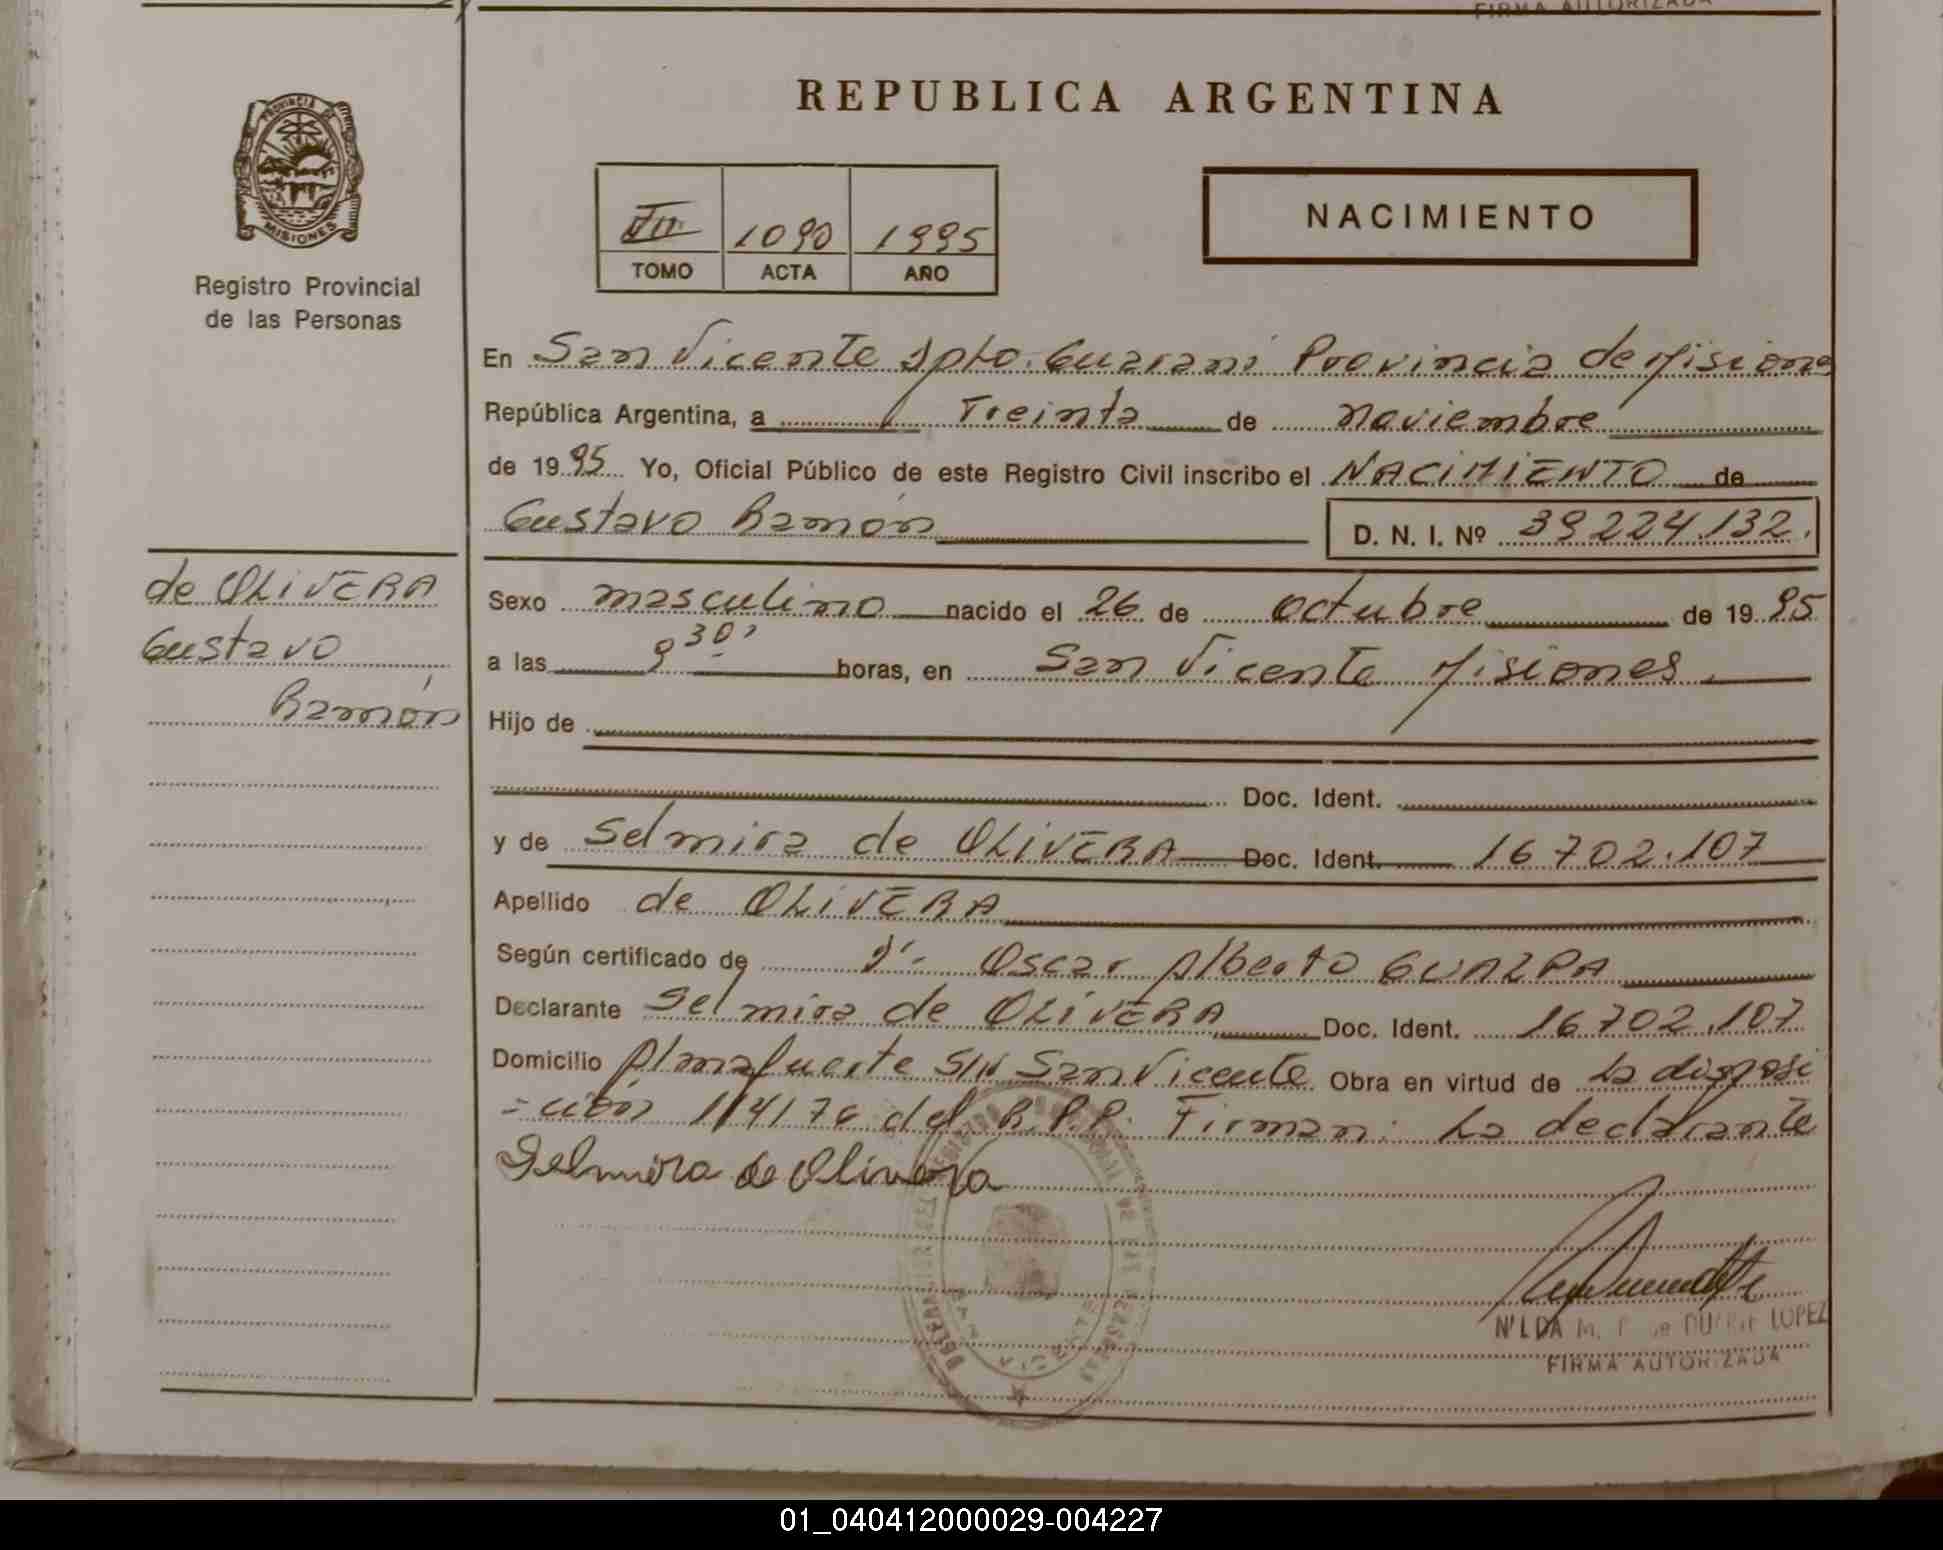 FIRMA AUTORIZADA
REPUBLICA ARGENTINA
PROVINCIA DE
MISIONES
Registro Provincial
de las Personas
III 1090 1995
TOMO ACTA AÑO
NACIMIENTO
En San Vicente Dpto. Guaraní Provincia de Misiones
República Argentina, a Treinta de Noviembre
de 1995 Yo, Oficial Público de este Registro Civil inscribo el NACIMIENTO de
Gustavo Ramón D. N. I. Nº 39224.132.
de OLIVERA
Gustavo
Ramón
Sexo masculino nacido el 26 de octubre de 1995
a las 9 30' horas, en San Vicente Misiones.
Hijo de
Doc. Ident.
y de Selmira de OLIVERA Doc. Ident. 16702.107
Apellido de OLIVERA
Según certificado de Dr. Oscar Alberto
Declarante Selmira de OLIVERA Doc. Ident. 16702.107
Domicilio Planafuerte S/N San Vicente Obra en virtud de La disposi
=ción 114176 del R.P.P. Firman: La declarante
Selmira de Olivera
SAN VICENTE
NILDA M. de LOPEZ
FIRMA AUTORIZADA
01_040412000029-004227